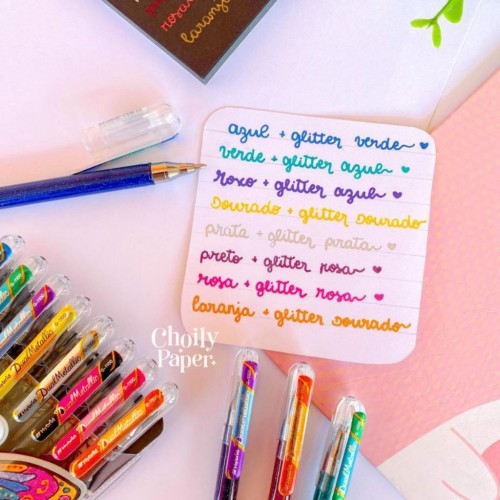 rosa
laranja
azul + glitter verde
verde + glitter azul
roxo + glitter azul
Dourado + glitter Dourado
prata + glitter prata
preto + glitter rosa
rosa + glitter rosa
laranja + glitter Dourado
Choily
Paper.
DualMetallic
DualMetallic
DualMetallic
DualMetallic